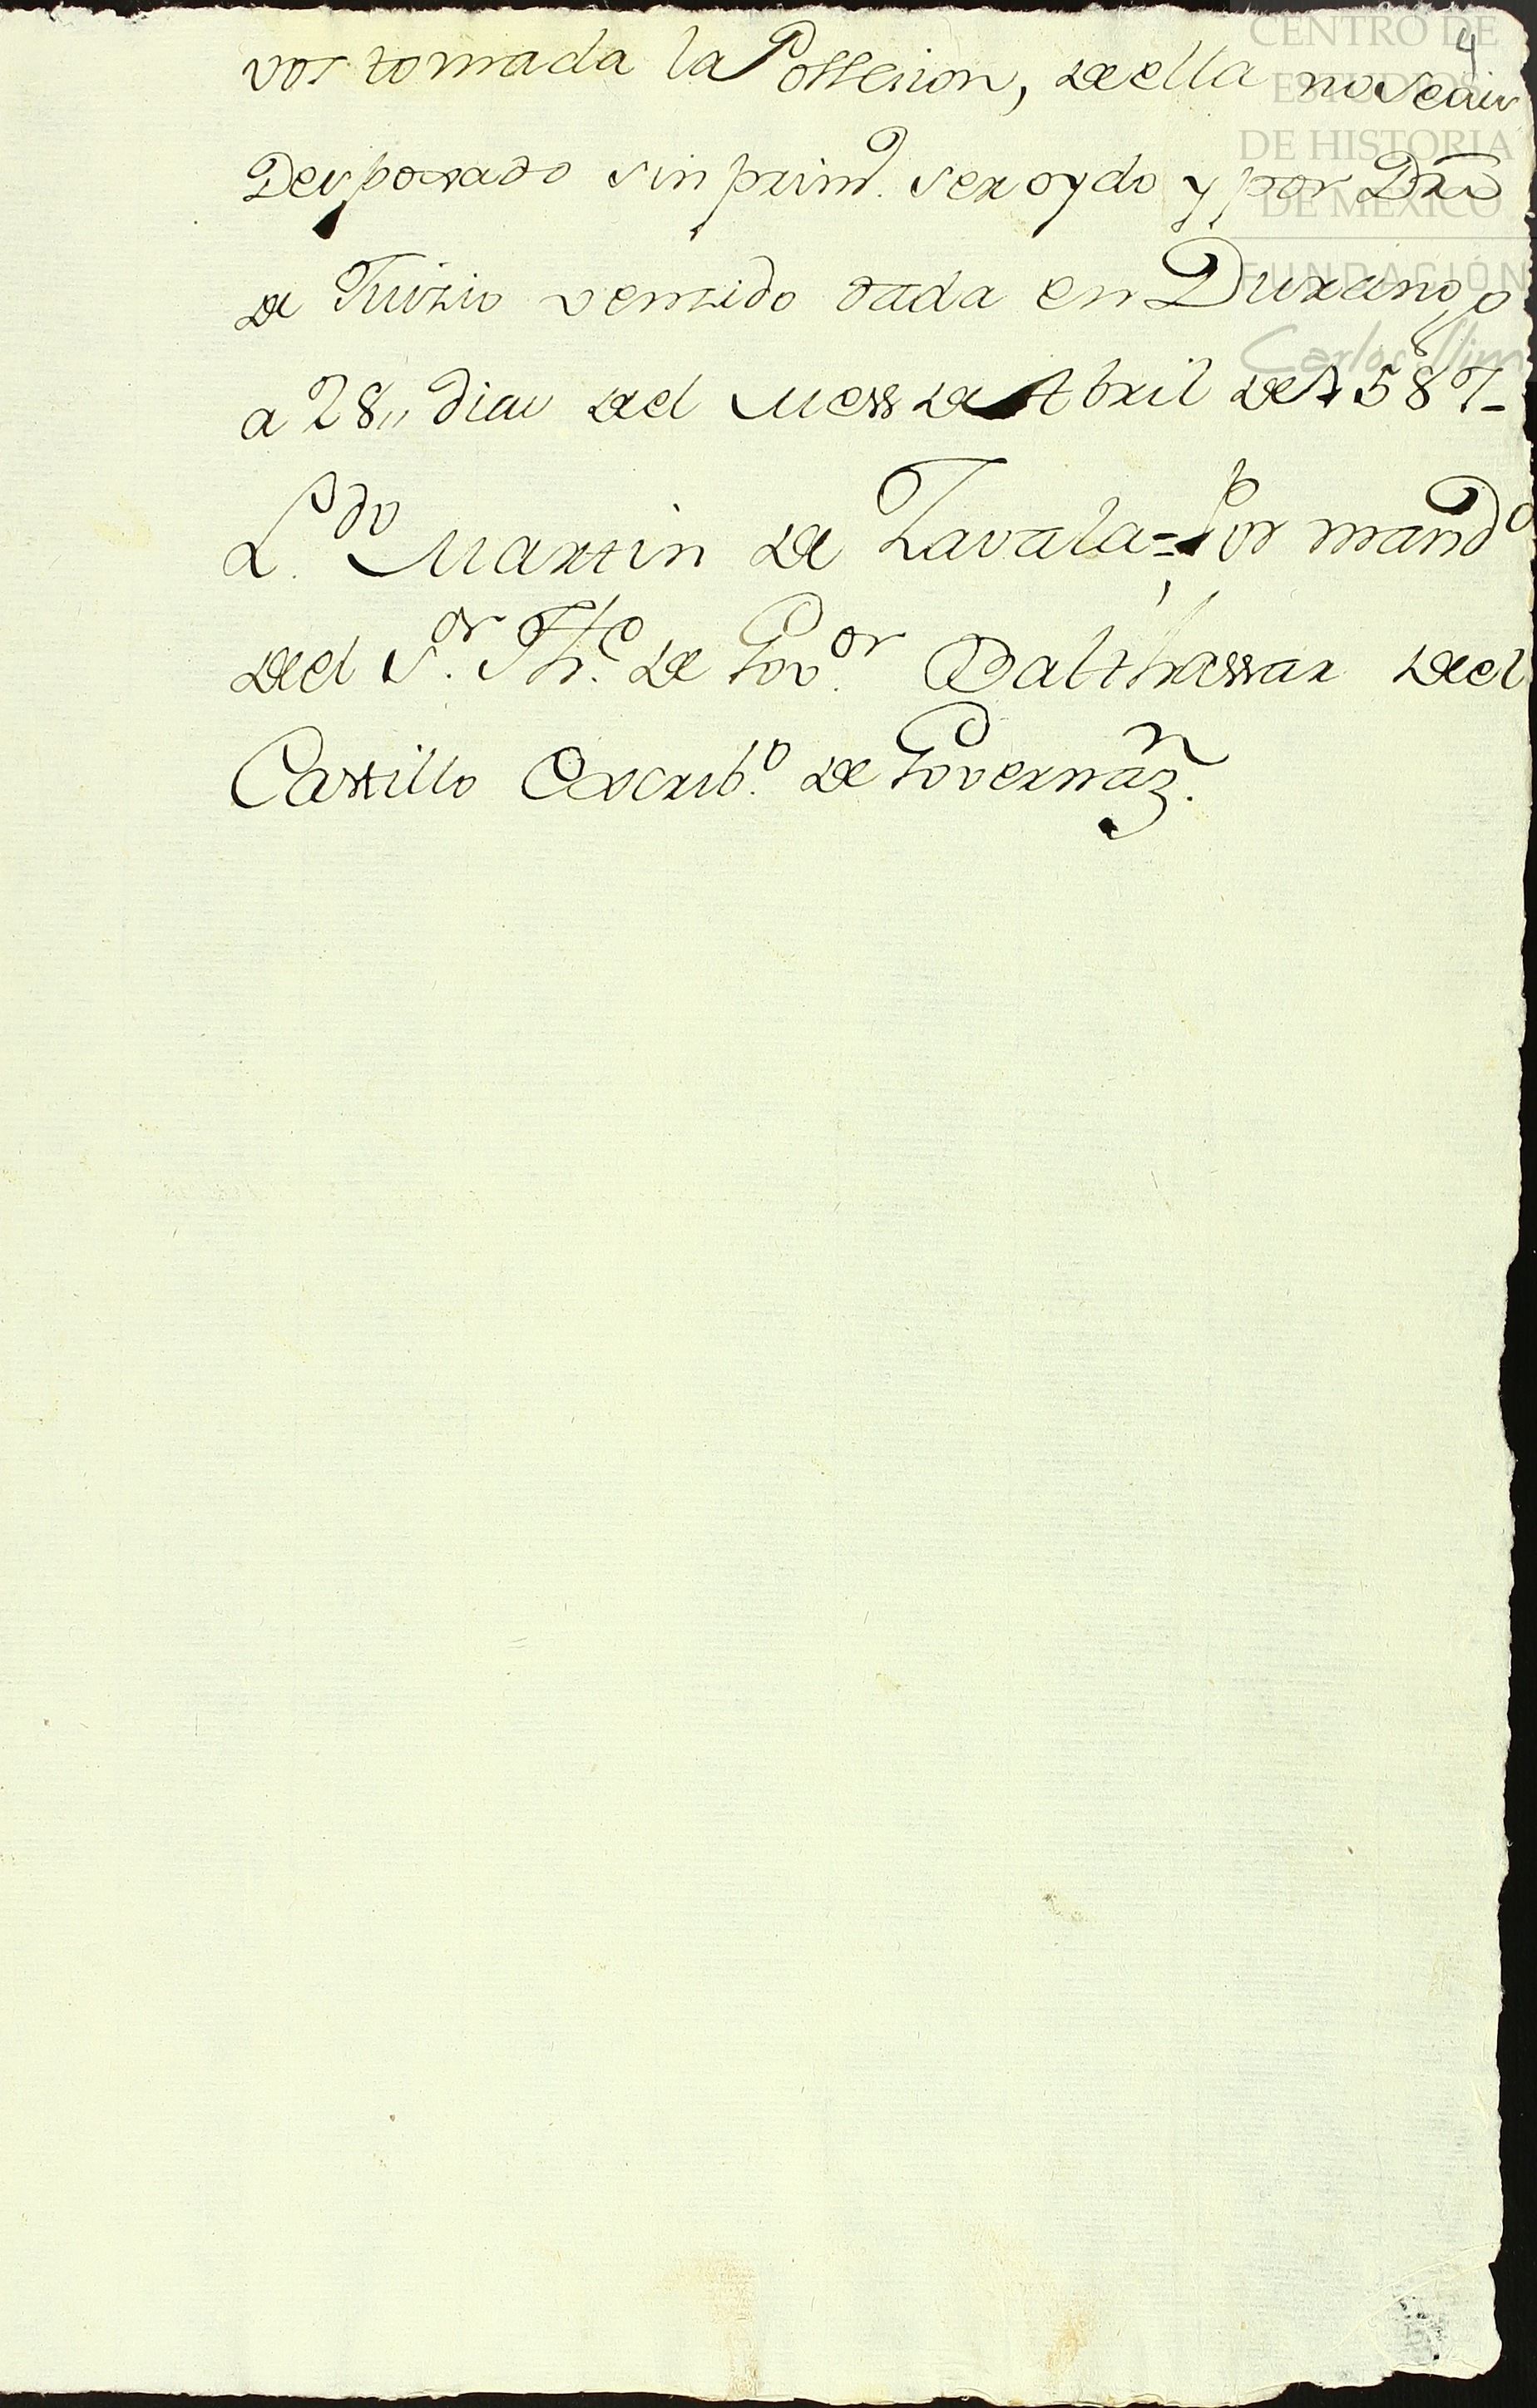 4
vos tomada la Possesion, de ella no seais
Desposado sin prim.º ser oydo y por Dro
de Juizio vensido dada en Durango
a 28,, dias del Mess de Abril de 1587-
L.do Martin de Zavala = Por mand.º
del S.or Th.e de Gov.or Balthassar del
Castillo Escrib.º de Governaz.n
CENTRO DE
ESTUDIOS
DE HISTORIA
DE MÉXICO
FUNDACIÓN
Carlos Slim